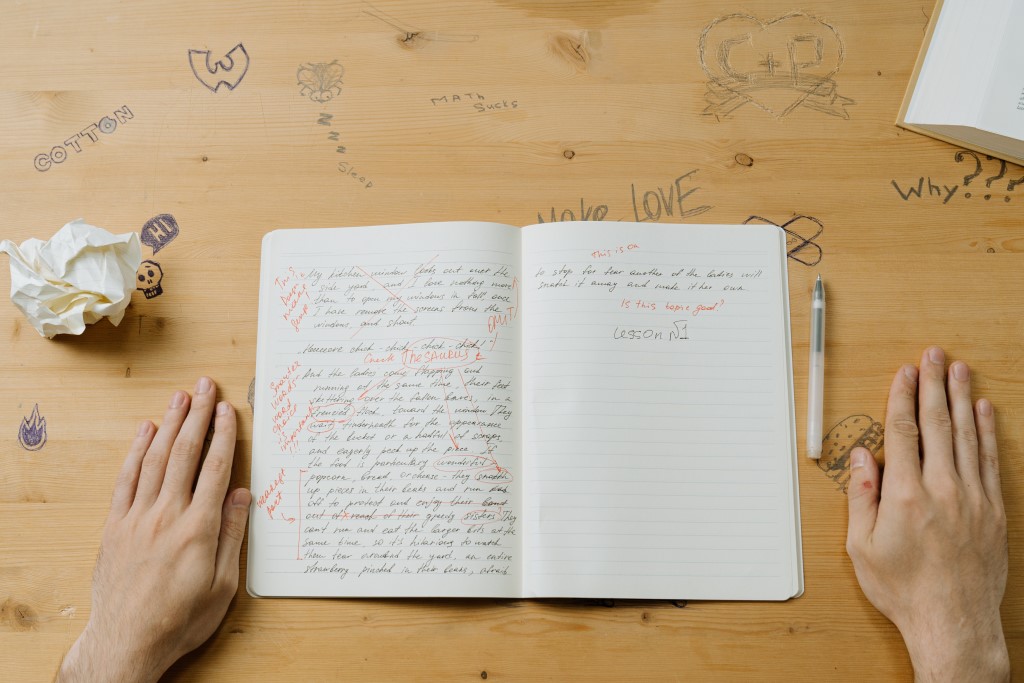 COTTON
zzz
Sleep
MATH
Sucks
C+P
Make LOVE
Why???
HI
My kitchen window looks out over the
side yard, and I love nothing more
than to open my windows in fall, once
I have remove the screens from the
windows, and shout.
OMIT!
chick-chick-chick-chick!
THESAURUS
And the ladies come flapping and
running at the same time, their feet
skittering over the fallen leaves, in a
frenzied flock, toward the window. They
wait underneath for the appearance
of the bucket or a handful of scraps,
and eagerly peck up the piece. If
the food is particulary wonderful -
popcorn, bread, or cheese - they
up pieces in their beaks and run
off to protect and enjoy their
out of reach of their greedy sisters. They
can't run and eat the larger bits at the
same time, so it's hilarious to watch
them tear around the yard, an entire
strawberry pinched in their beaks, afraid
weakest
part
this is on
to stop for fear another of the ladies will
snatch it away and make it her own.
Is this topic good?
Lesson №1